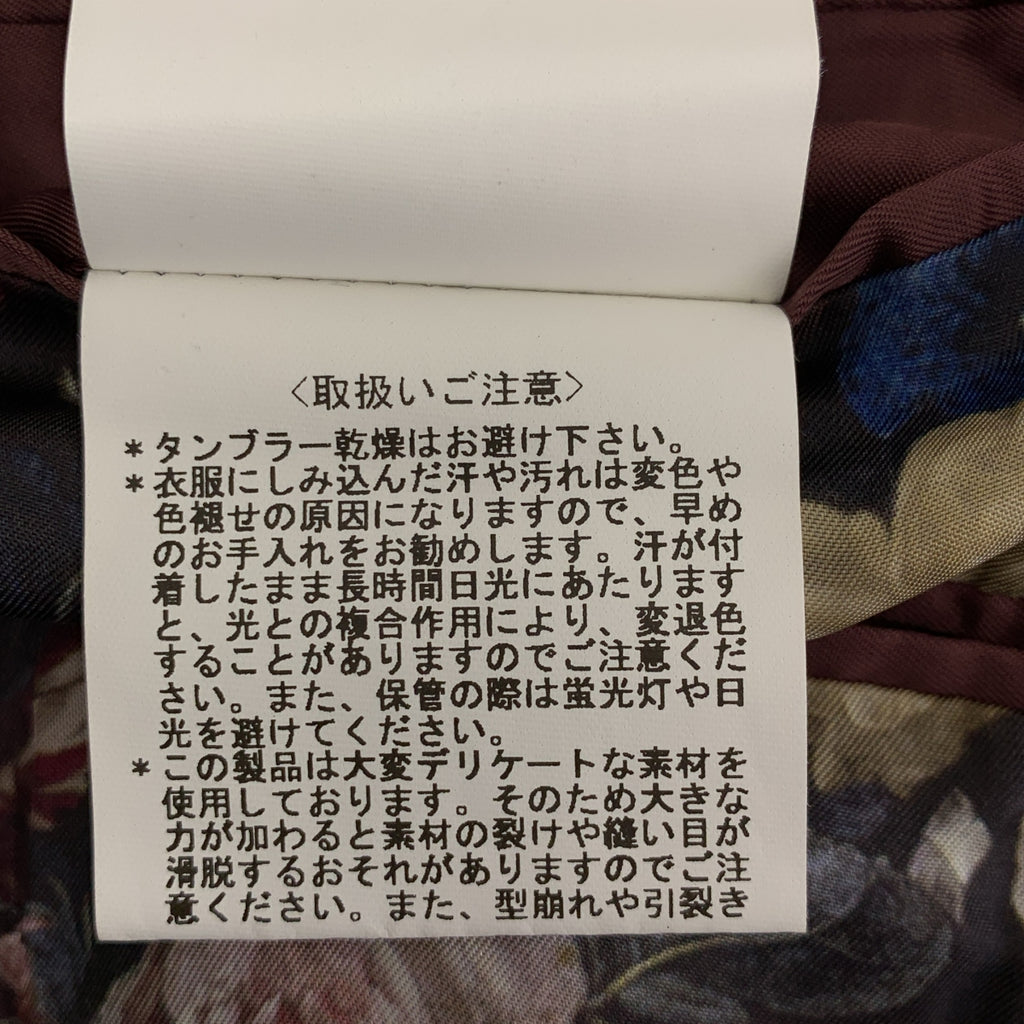 〈取扱いご注意〉
＊タンブラー乾燥はお避け下さい。
＊衣服にしみ込んだ汗や汚れは変色や
色褪せの原因になりますので、早め
のお手入れをお勧めします。汗が付
着したまま長時間日光にあたります
と、光との複合作用により、変退色
することがありますのでご注意くだ
さい。また、保管の際は蛍光灯や日
光を避けてください。
＊この製品は大変デリケートな素材を
使用しております。そのため大きな
力が加わると素材の裂けや縫い目が
滑脱するおそれがありますのでご注
意ください。また、型崩れや引裂き